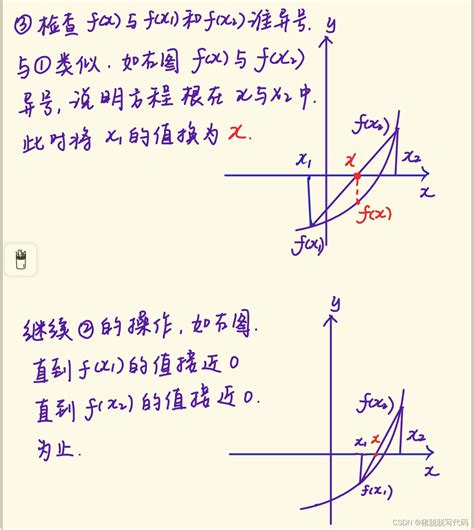 ③检查f(x)与f(x₁)和f(x₂)谁异号.
与①类似.如右图 f(x)与f(x₂)
异号,说明方程根在x与x₂中.
此时将x₁的值换为x.
y
f(x₂)
x₁
x
x₂
x
f(x)
f(x₁)
继续②的操作,如右图.
直到f(x₁)的值接近0
直到f(x₂)的值接近0.
为止.
y
f(x₂)
x₁
x
x₂
x
f(x₁)
CSDN @猪脱脱写代码